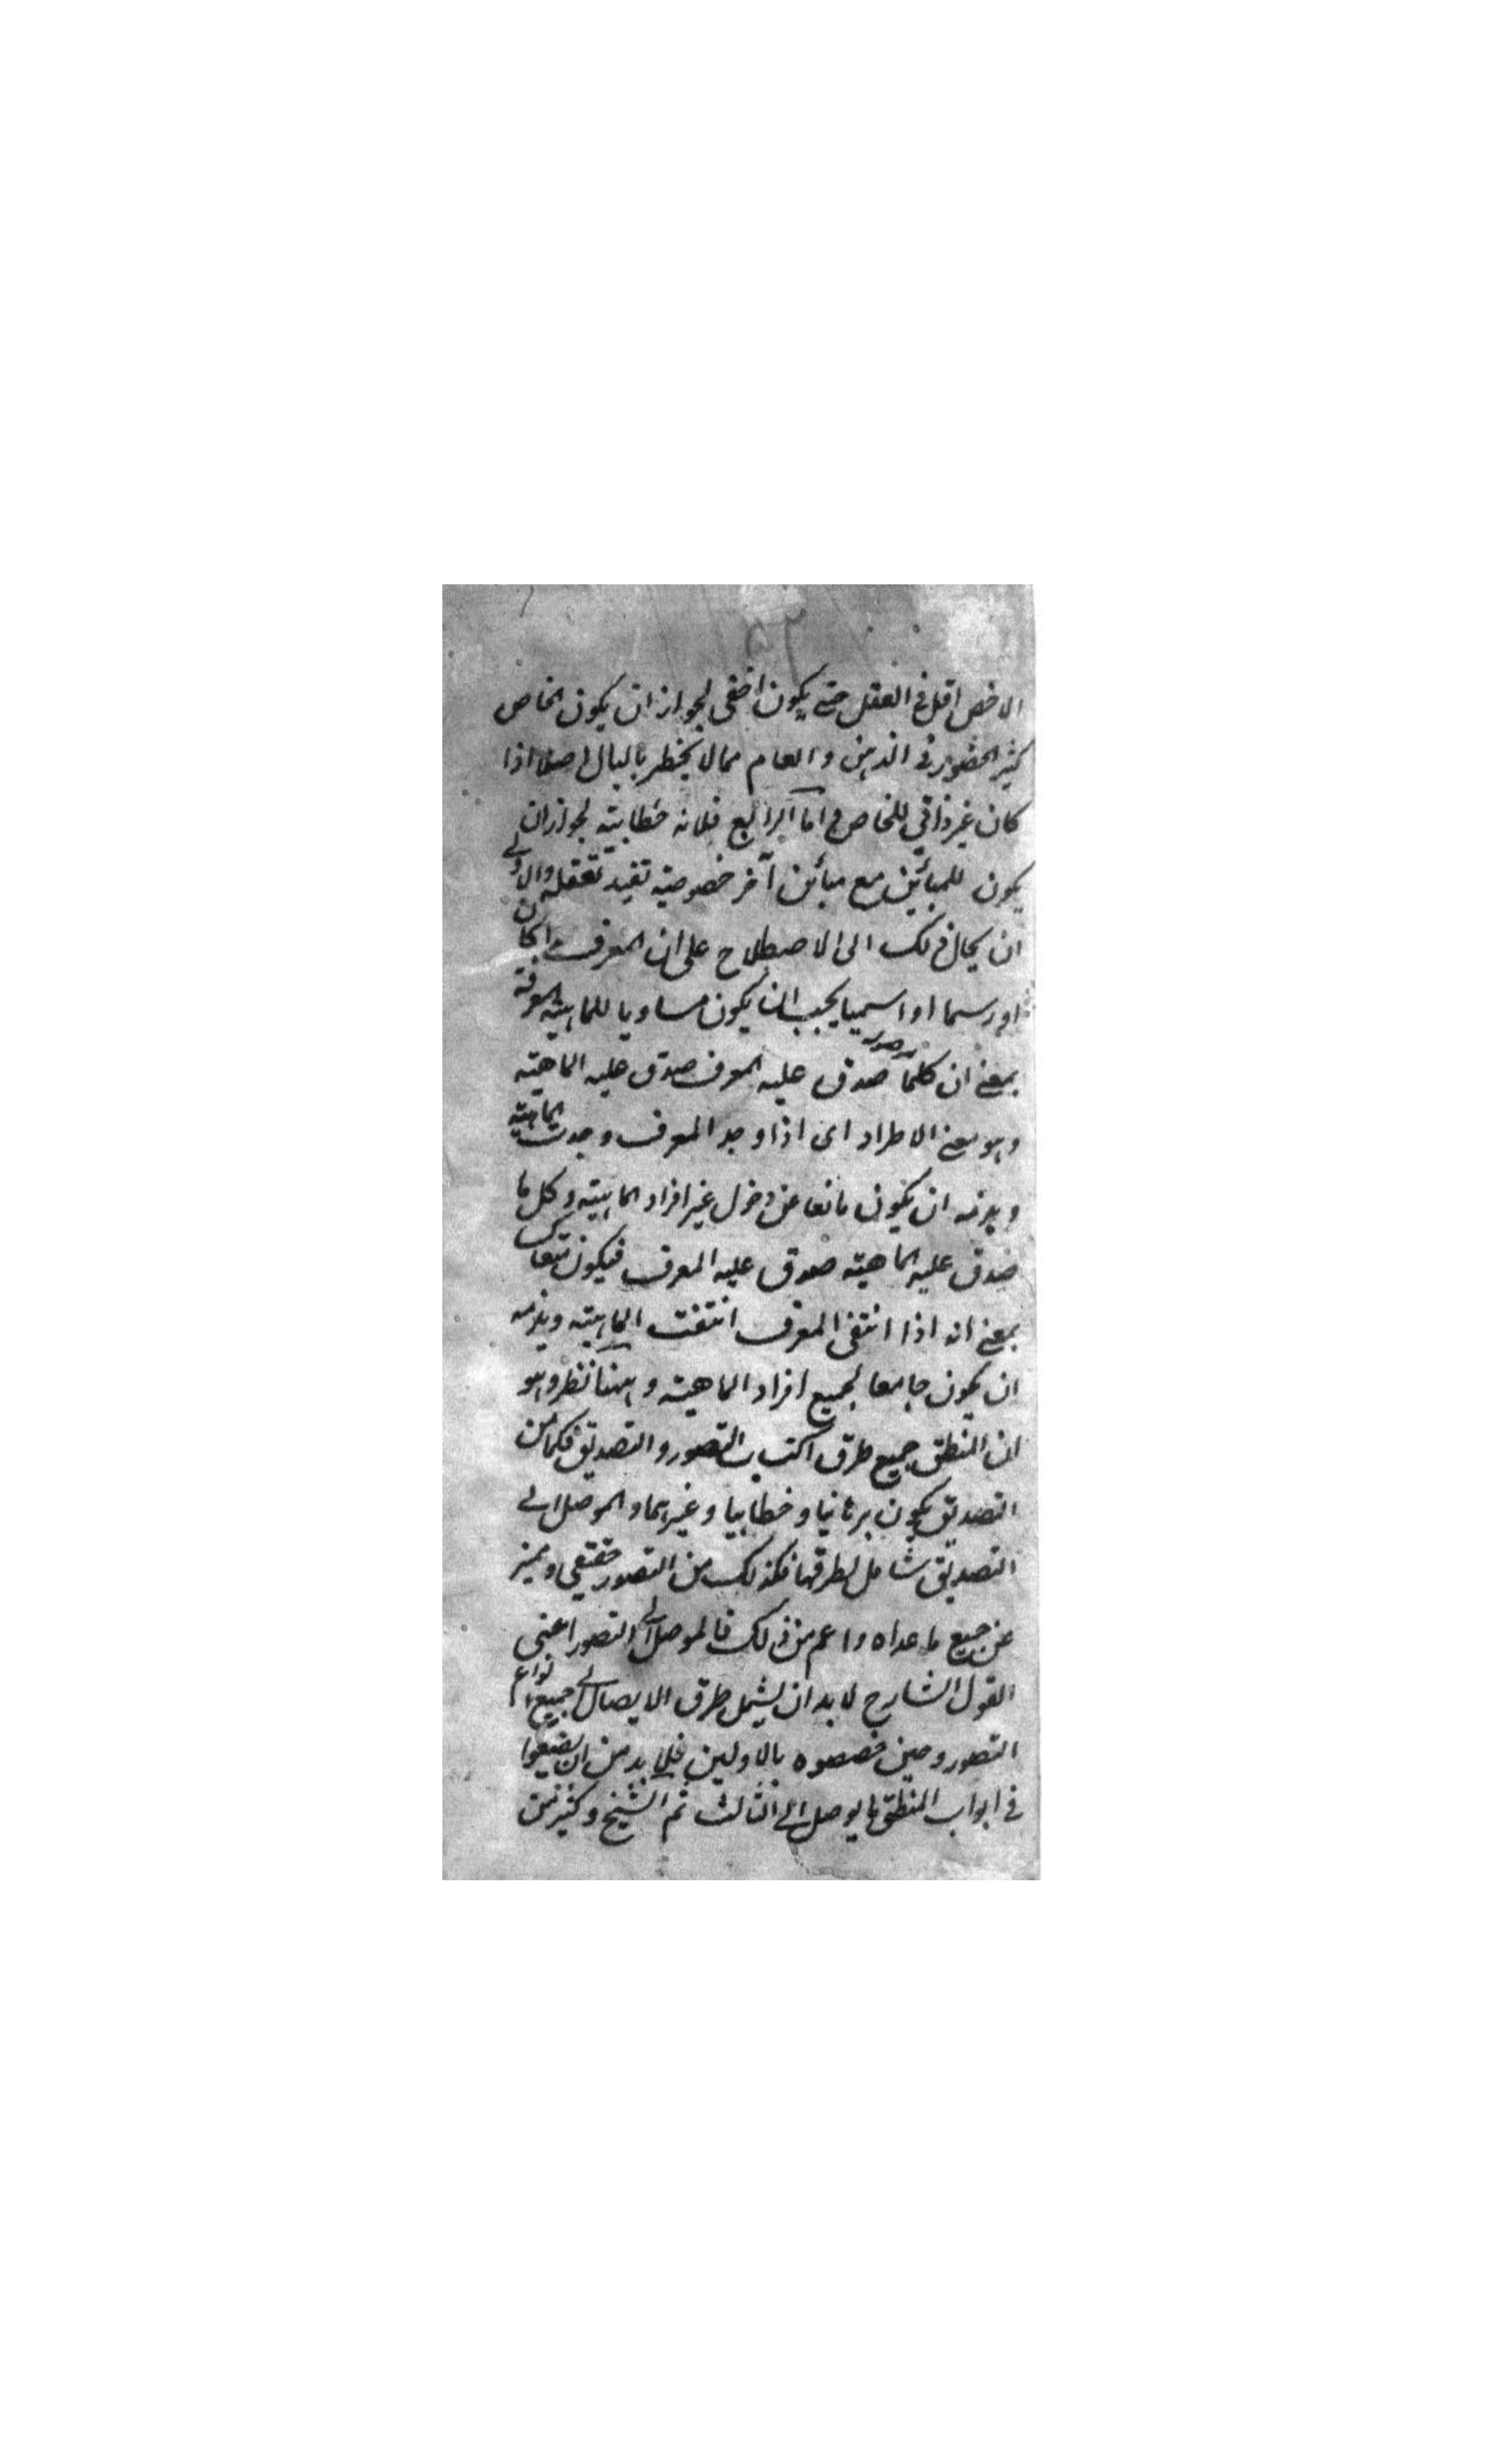 الاخص اقل فى العقل حتى يكون اخفى لجواز ان يكون الخاص
كثير الحضور فى الذهن والعام مما لا يخطر بالبال اصلا اذا
كان غير ذاتي للخاص و اما الرابع فلانه خطابية لجواز ان
يكون للمبائن مع مبائن آخر خصوصية تفيد تعقله والاولى
ان يحال ذلك الى الاصطلاح على ان المعرف حدا كان
او رسما او اسميا يجب ان يكون مساويا للماهية المعرفة
بمعنى ان كلما صدق عليه المعرف صدق عليه الماهية
وهو معنى الاطراد اى اذا وجد المعرف وجدت الماهية
ويلزمه ان يكون مانعا عن دخول غير افراد الماهية وكل ما
صدق عليه الماهية صدق عليه المعرف فيكون منعكس
بمعنى انه اذا انتفى المعرف انتفت الماهية ويلزمه
ان يكون جامعا لجميع افراد الماهية وههنا نظر وهو
ان المنطق جميع طرق اكتساب التصور والتصديق فكما من
التصديق يكون برهانيا وخطابيا وغيرهما والموصل الى
التصديق شامل لطرقها فكذلك من التصور حقيقي ومميز
عن جميع ما عداه واعم من ذلك فالموصل الى التصور اعنى
القول الشارح لابد ان يشمل طرق الايصال الى جميع انواع
التصور وحين خصصوه بالاولين فلا بد من ان يضعوا
فى ابواب المنطق ما يوصل الى الثالث ثم الشيخ وكثير من